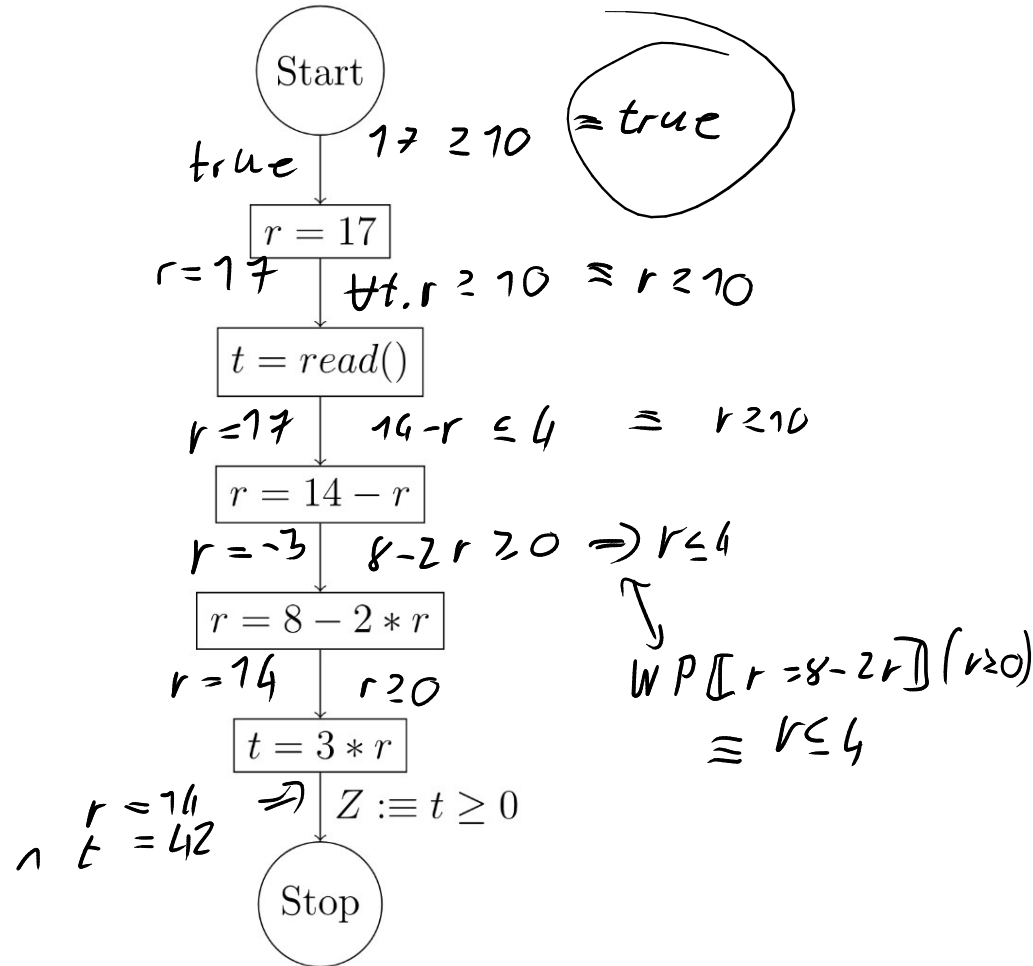 Start
true 17 ≥ 10 ≡ true
r = 17
r = 17 ∀t. r ≥ 10 ≡ r ≥ 10
t = read()
r = 17 14 - r ≤ 4 ≡ r ≥ 10
r = 14 − r
r = -3 8 - 2r ≥ 0 ⇒ r ≤ 4
r = 8 − 2 ∗ r
WP⟦r = 8 - 2r⟧(r ≥ 0)
≡ r ≤ 4
r = 14 r ≥ 0
t = 3 ∗ r
r = 14 ⇒ Z :≡ t ≥ 0
∧ t = 42
Stop